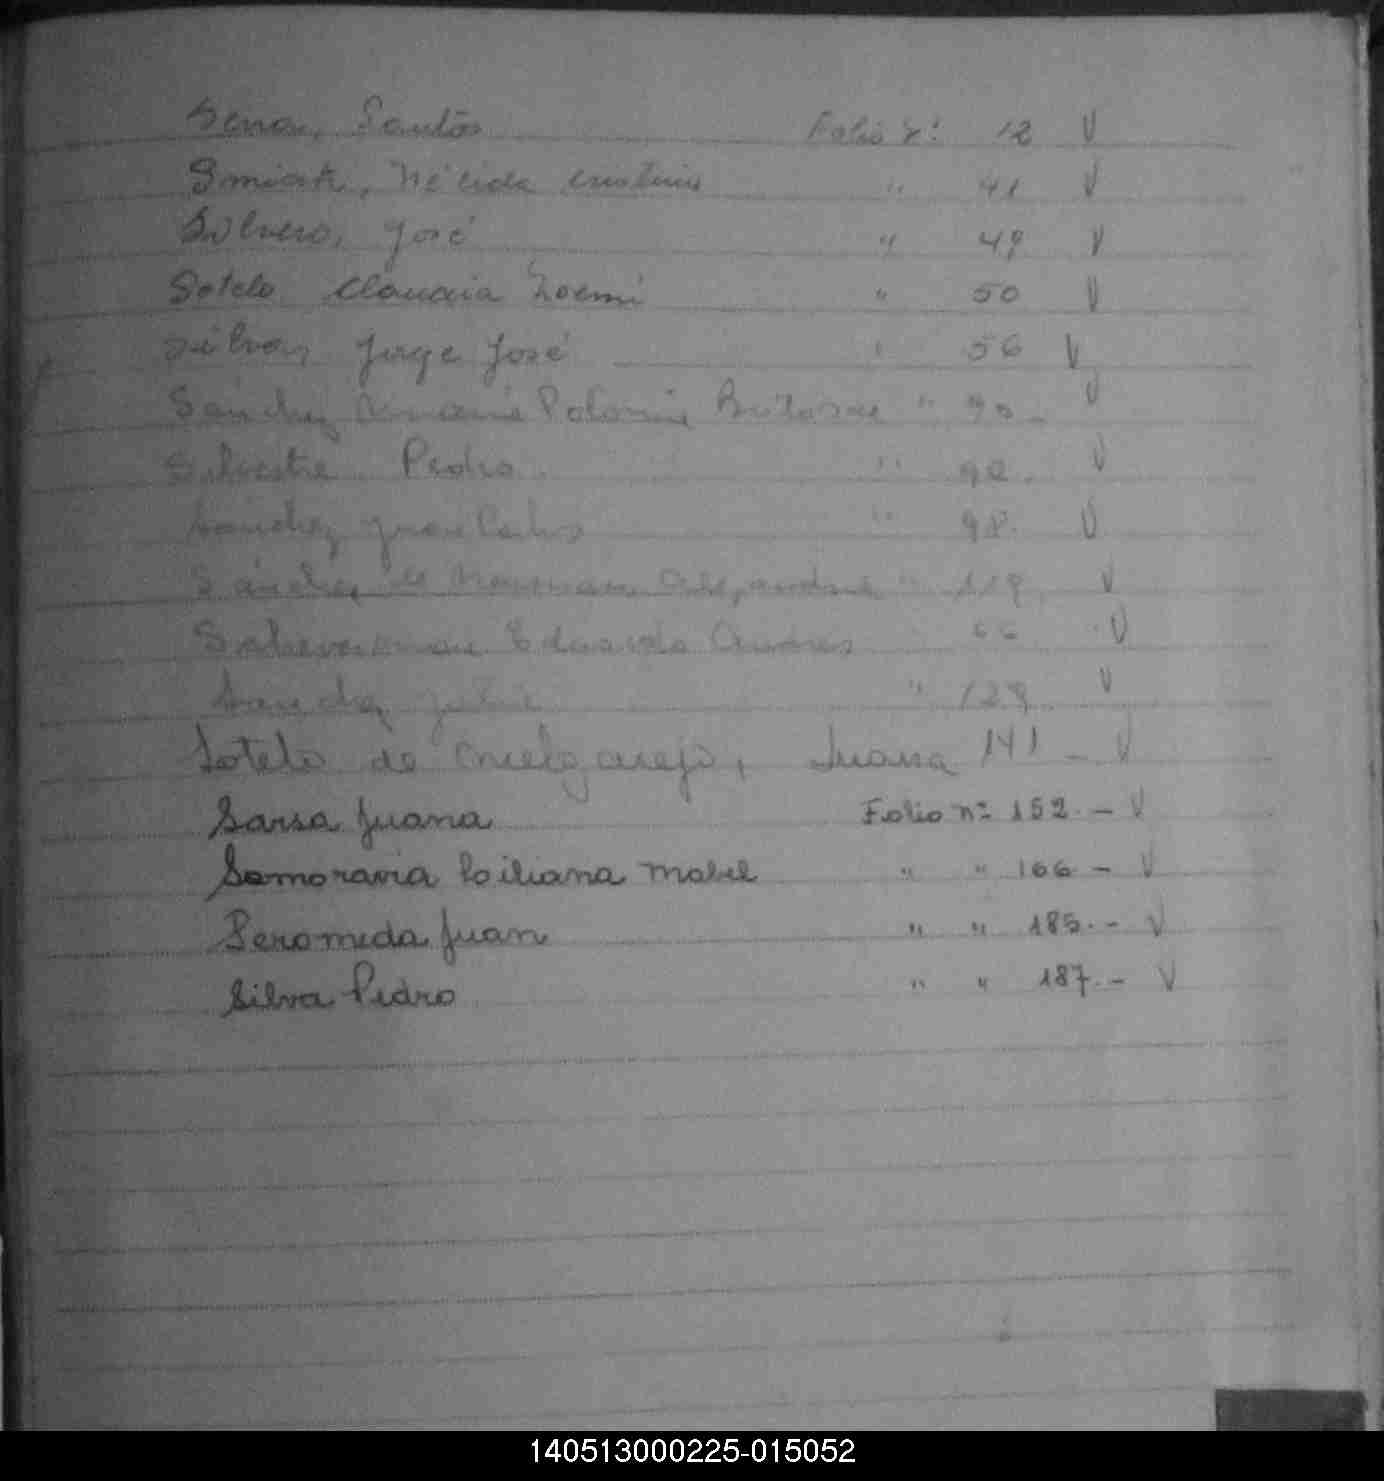 Sena, Santos Folio nº 12 V
Smiak, Nélida Cristina " 41 V
Silvero, José " 49 V
Sotelo Claudia Noemi " 50 V
Silva, Jorge José " 56 V
Sánchez Polonia " 90 - V
Silvestre Pedro " 92. V
Sanchez Juan Carlos " 98. V
Sánchez de Alejandra " 119 V
Eduardo Andres 66 V
Sanchez Julia " 129 V
Sotelo de Melgarejo, Juana 141 - V
Sarsa Juana Folio nº 152. - V
Samoravia Liliana Mabel " " 166 - V
Seromeda Juan " " 185. - V
Silva Pedro " " 187. - V
140513000225-015052